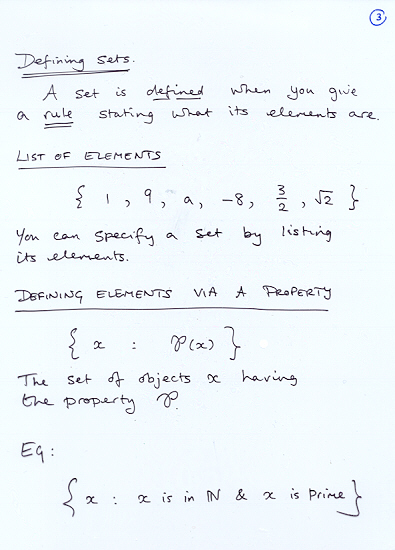 3
Defining sets.
A set is defined when you give
a rule stating what its elements are.
LIST OF ELEMENTS
{ 1, 9, a, -8, 3/2, √2 }
You can specify a set by listing
its elements.
DEFINING ELEMENTS VIA A PROPERTY
{ x : P(x) }
The set of objects x having
the property P.
Eg:
{ x : x is in ℕ & x is prime }